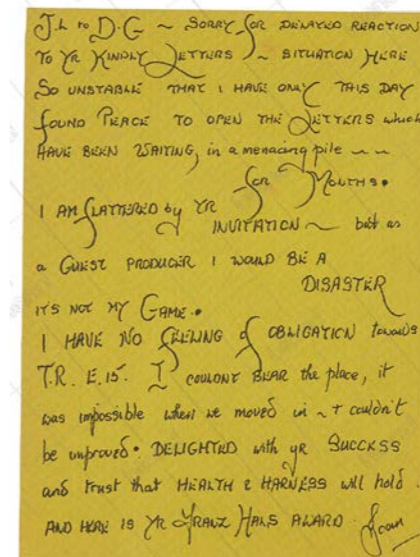 J.L to D.G ~ SORRY FOR DELAYED REACTION
TO YR KINDLY LETTERS ~ SITUATION HERE
SO UNSTABLE THAT I HAVE ONLY THIS DAY
FOUND PEACE TO OPEN THE LETTERS which
HAVE BEEN WAITING, in a menacing pile ~ ~
FOR MONTHS.
I AM FLATTERED by YR
INVITATION ~ but as
a GUEST PRODUCER I WOULD BE A
DISASTER
IT'S NOT MY GAME.
I HAVE NO FEELING of OBLIGATION towards
T.R. E.15. I COULDNT BEAR the place, it
was impossible when we moved in ~ + couldn't
be improved. DELIGHTED with yr SUCCESS
and trust that HEALTH & HARNESS will hold.
AND HERE IS YR FRANZ HALS AWARD. Joan